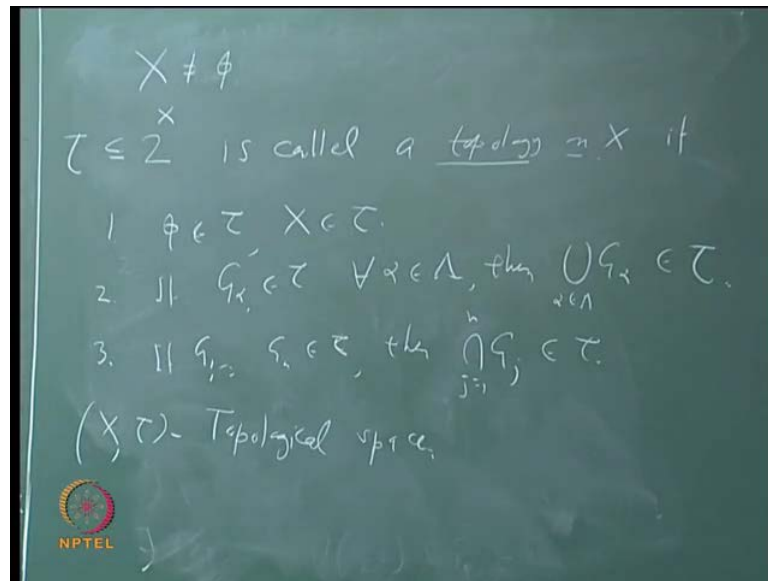 X ≠ φ
τ ⊆ 2^X is called a topology on X if
1. φ ∈ τ, X ∈ τ.
2. If G_α ∈ τ ∀ α ∈ Λ, then ⋃_{α∈Λ} G_α ∈ τ.
3. If G_1, ... G_n ∈ τ, then ⋂_{j=1}^n G_j ∈ τ.
(X, τ) - Topological space.
NPTEL